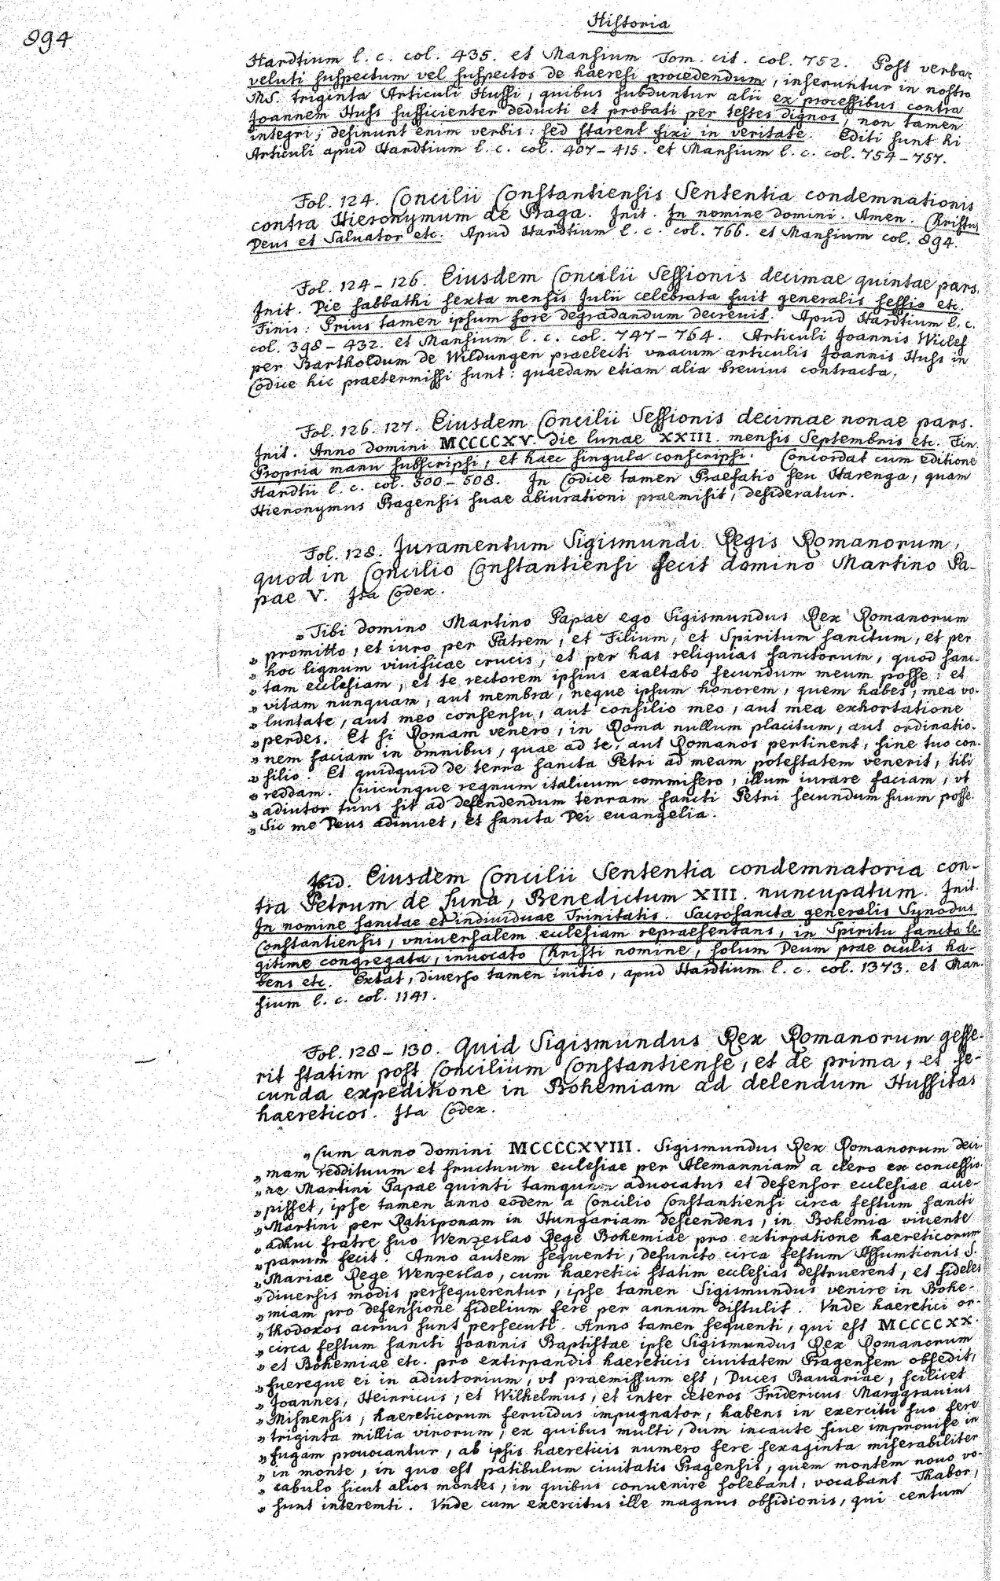 894
Historia
Hardtium l. c. col. 435. et Mansium Tom. cit. col. 752. Post verba:
veluti suspectum vel suspectos de haeresi procedendum, inseruntur in nostro
MS. triginta Articuli Hussi, quibus subduntur alii ex processibus contra
Joannem Huss sufficienter deducti et probati per testes dignos, non tamen
integri; desinunt enim verbis: sed starent fixi in veritate. Editi sunt hi
Articuli apud Hardtium l. c. col. 407-415. et Mansium l. c. col. 754-757.
Fol. 124. Concilii Constantiensis Sententia condemnationis
contra Hieronymum de Praga. Init. In nomine domini. Amen. Christus
Deus et Salvator etc. Apud Hardtium l. c. col. 766. et Mansium col. 894.
Fol. 124-126. Eiusdem Concilii Sessionis decimae quintae pars.
Init. Die sabbathi sexta mensis Julii celebrata fuit generalis sessio etc.
Finis: Prius tamen ipsum fore degradandum decrevit. Apud Hardtium l. c.
col. 398-432. et Mansium l. c. col. 747-764. Articuli Joannis Wiclef
per Bartholdum de Wildungen praelecti vnacum articulis Joannis Huss in
Codice hic praetermissi sunt: quaedam etiam alia brevius contracta.
Fol. 126. 127. Eiusdem Concilii Sessionis decimae nonae pars.
Init. Anno domini MCCCCXV. die lunae XXIII. mensis Septembris etc. Fin.
Propria manu subscripsi, et haec singula conscripsi. Concordat cum editione
Hardtii l. c. col. 500-508. In Codice tamen Praefatio seu Harenga, quam
Hieronymus Pragensis suae abiurationi praemisit, desideratur.
Fol. 128. Juramentum Sigismundi Regis Romanorum,
quod in Concilio Constantiensi fecit domino Martino Pa-
pae V. Ita Codex.
„Tibi domino Martino Papae ego Sigismundus Rex Romanorum
„promitto, et iuro per Patrem, et Filium, et Spiritum sanctum, et per
„hoc lignum viuificae crucis, et per has reliquias sanctorum, quod sanc-
„tam ecclesiam, et te rectorem ipsius exaltabo secundum meum posse: et
„vitam nunquam, aut membra, neque ipsum honorem, quem habes, mea vo-
„luntate, aut meo consensu, aut consilio meo, aut mea exhortatione
„perdes. Et si Romam venero, in Roma nullum placitum, aut ordinatio-
„nem faciam in omnibus, quae ad te, aut Romanos pertinent, sine tuo con-
„silio. Et quidquid de terra sancta Petri ad meam potestatem venerit, tibi
„reddam. Cuicunque regnum italicum commisero, illum iurare faciam, vt
„adiutor tuus sit ad defendendum terram sancti Petri secundum suum posse.
„Sic me Deus adiuuet, et sancta Dei euangelia.
Ibid. Eiusdem Concilii Sententia condemnatoria con-
tra Petrum de Luna, Benedictum XIII. nuncupatum. Init.
In nomine sanctae et individuae Trinitatis. Sacrosancta generalis Synodus
Constantiensis, vniuersalem ecclesiam repraesentans, in Spiritu sancto le-
gitime congregata, inuocato Christi nomine, solum Deum prae oculis ha-
bens etc. Extat, diuerso tamen initio, apud Hardtium l. c. col. 1373. et Man-
sium l. c. col. 1141.
Fol. 128-130. Quid Sigismundus Rex Romanorum gesse-
rit statim post Concilium Constantiense, et de prima, et se-
cunda expeditione in Bohemiam ad delendum Hussitas
haereticos. Ita Codex.
„Cum anno domini MCCCCXVIII. Sigismundus Rex Romanorum deci-
„mam reddituum et fructuum ecclesiae per Alemanniam a clero ex concessio-
„ne Martini Papae quinti tamquam aduocatus et defensor ecclesiae acce-
„pisset, ipse tamen anno eodem a Concilio Constantiensi circa festum sancti
„Martini per Ratisponam in Hungariam descendens, in Bohemia viuente
„adhuc fratre suo Wenzeslao Rege Bohemiae pro extirpatione haereticorum
„parum fecit. Anno autem sequenti, defuncto circa festum Assumtionis S.
„Mariae Rege Wenzeslao, cum haeretici statim ecclesias destruerent, et fideles
„diuersis modis persequerentur, ipse tamen Sigismundus venire in Bohe-
„miam pro defensione fidelium fere per annum distulit. Vnde haeretici or-
„thodoxos acrius sunt persecuti. Anno tamen sequenti, qui est MCCCCXX.
„circa festum sancti Joannis Baptistae ipse Sigismundus Rex Romanorum
„et Bohemiae etc. pro extirpandis haereticis ciuitatem Pragensem obsedit,
„fuereque ei in adiutorium, vt praemissum est, Duces Bauariae, scilicet
„Joannes, Heinricus, et Wilhelmus, et inter ceteros Fridericus Marggrauius
„Misnensis, haereticorum feruidus impugnator, habens in exercitu suo fere
„triginta millia virorum, ex quibus multi, dum incaute siue improuise in
„fugam prouocantur, ab ipsis haereticis numero fere sexaginta miserabiliter
„in monte, in quo est patibulum ciuitatis Pragensis, quem montem nouo vo-
„cabulo sicut alios montes, in quibus conuenire solebant, vocabant Thabor,
„sunt interemti. Vnde cum exercitus ille magnus obsidionis, qui centum